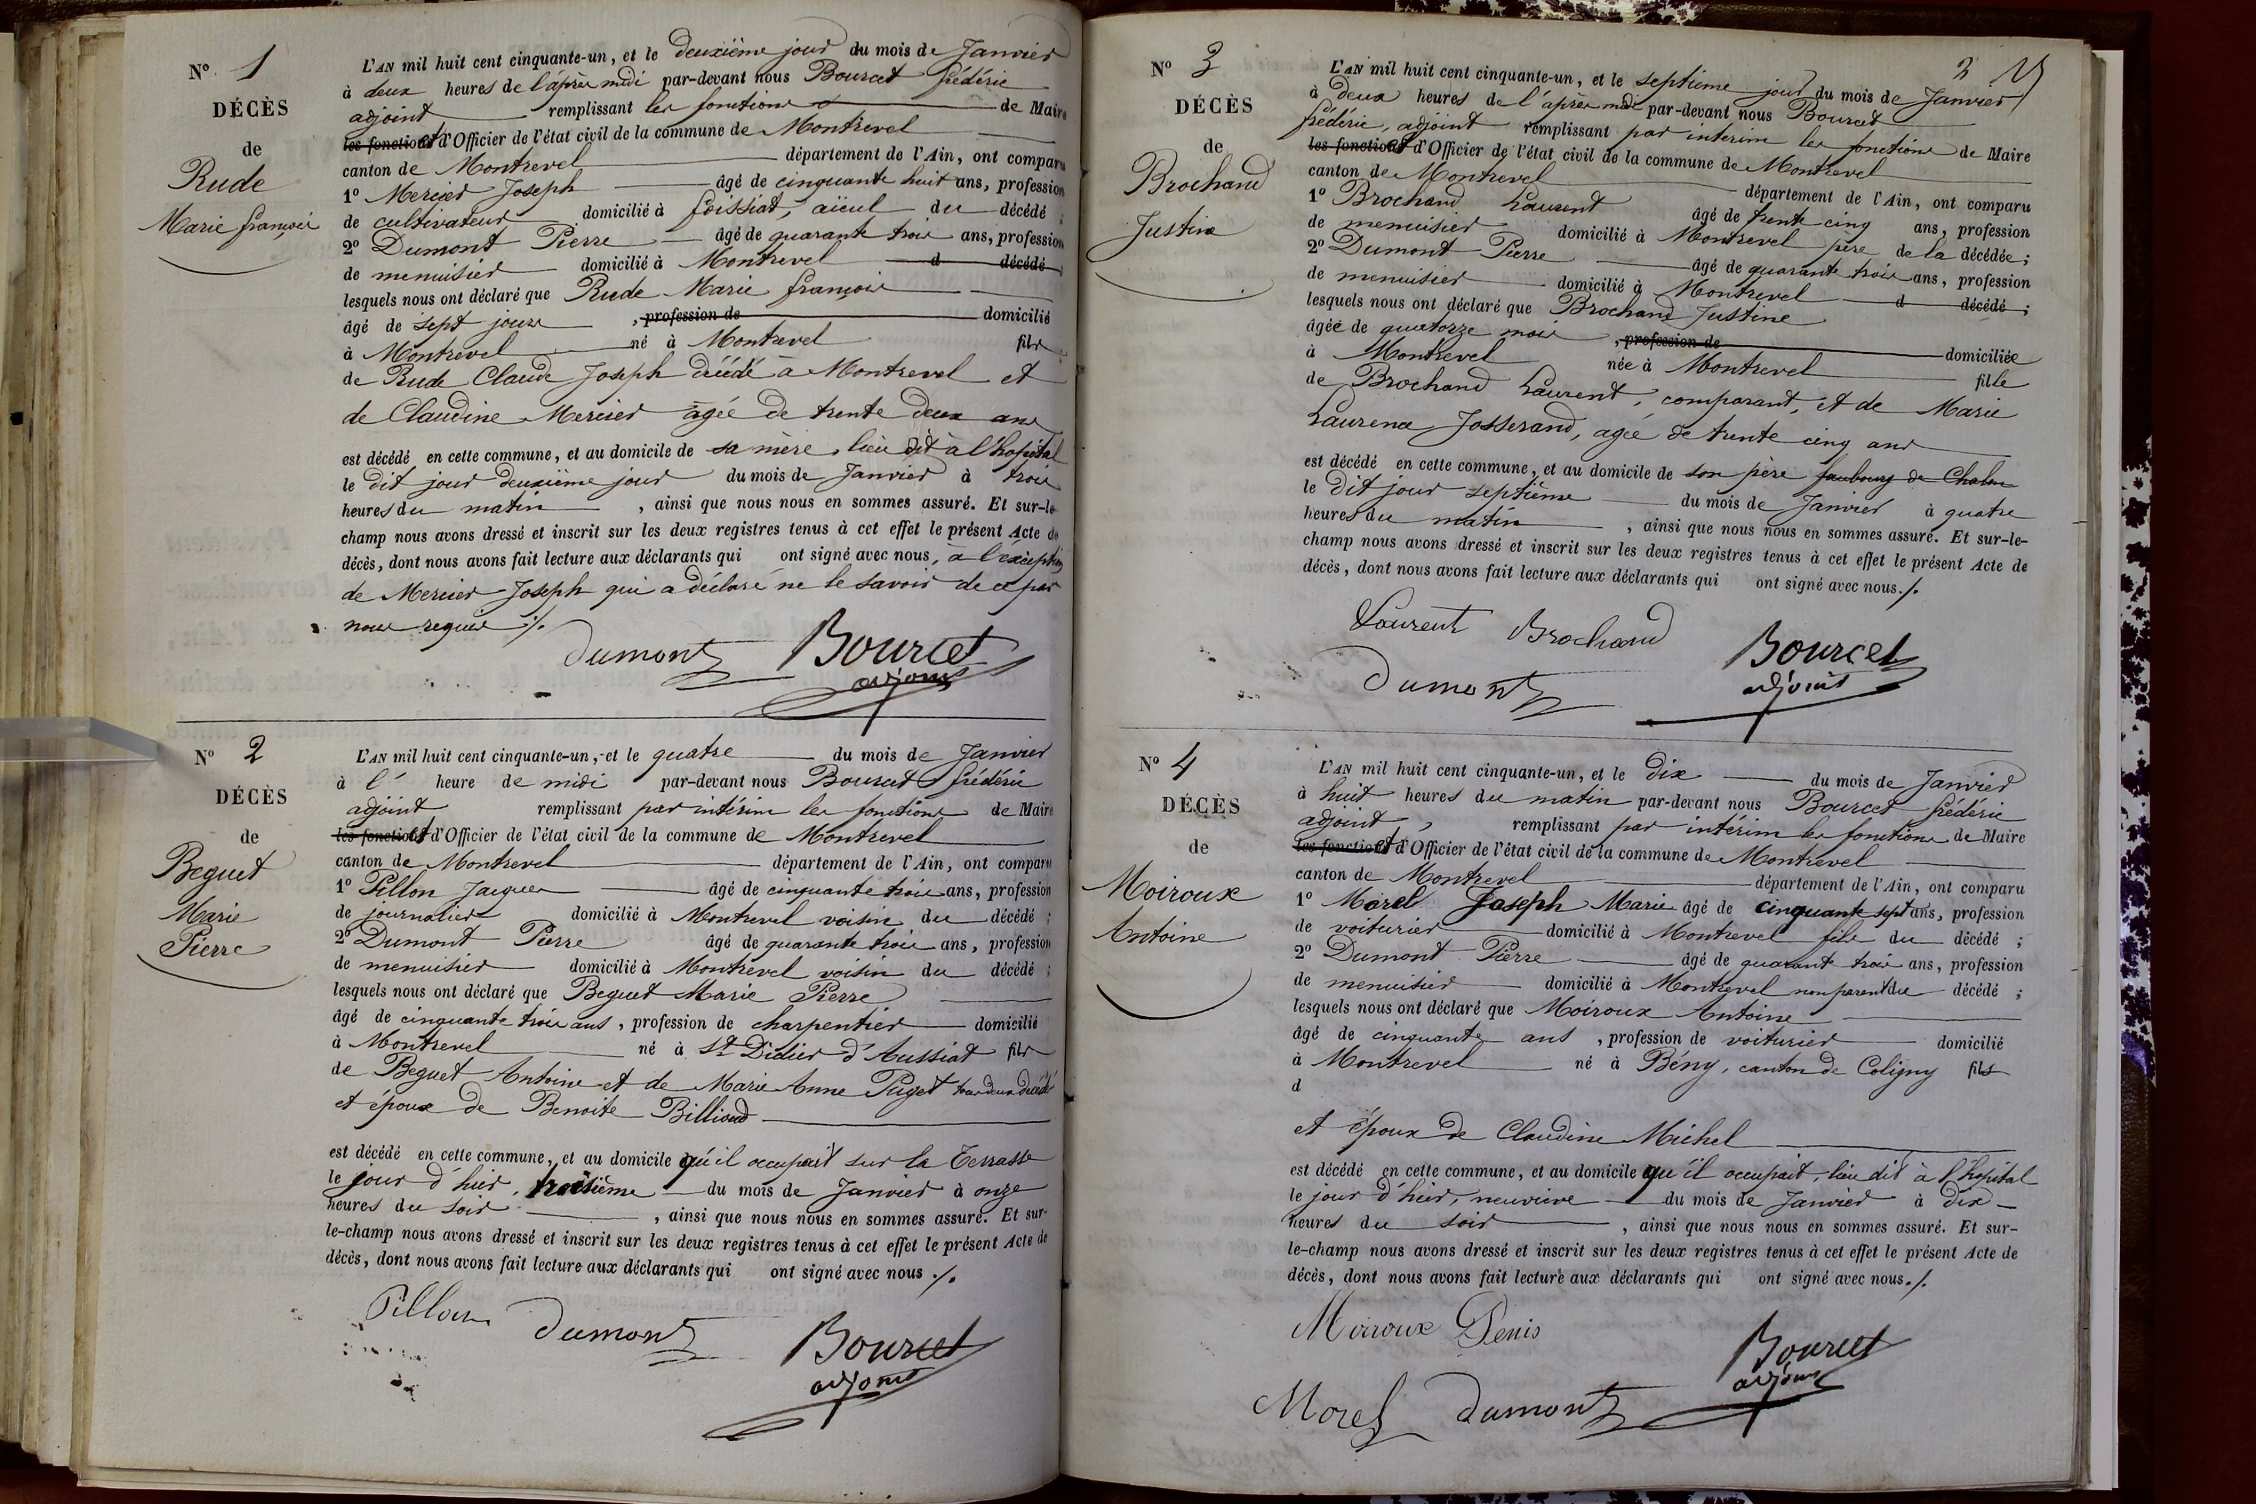 N° 1
DÉCÈS
de
Rude
Marie françois
L'AN mil huit cent cinquante-un, et le deuxième jour du mois de Janvier
à deux heures de l'après midi par-devant nous Bourcet frédéric
adjoint remplissant les fonctions de Maire
les fonctions et d'Officier de l'état civil de la commune de Montrevel
canton de Montrevel département de l'Ain, ont comparu
1° Mercier Joseph âgé de cinquante huit ans, profession
de cultivateur domicilié à foissiat, aïeul du décédé ;
2° Dumont Pierre âgé de quarante trois ans, profession
de menuisier domicilié à Montrevel d décédé ;
lesquels nous ont déclaré que Rude Marie françois
âgé de sept jours , profession de domicilié
à Montrevel né à Montrevel fils
de Rude Claude Joseph décédé à Montrevel et
de Claudine Mercier agée de trente deux ans
est décédé en cette commune, et au domicile de sa mère, lieu dit à l'hopital
le dit jour deuxième jour du mois de Janvier à trois
heures du matin , ainsi que nous nous en sommes assuré. Et sur-le-
champ nous avons dressé et inscrit sur les deux registres tenus à cet effet le présent Acte de
décès, dont nous avons fait lecture aux déclarants qui ont signé avec nous, a l'exception
de Mercier Joseph qui a déclaré ne le savoir de ce par
nous requis ./.
Dumont Bourcet
adjoint
N° 2
DÉCÈS
de
Beguet
Marie
Pierre
L'AN mil huit cent cinquante-un, et le quatre du mois de Janvier
à l' heure de midi par-devant nous Bourcet frédéric
adjoint remplissant par intérim les fonctions de Maire
les fonctions et d'Officier de l'état civil de la commune de Montrevel
canton de Montrevel département de l'Ain, ont comparu
1° Pillon Jacques âgé de cinquante trois ans, profession
de journalier domicilié à Montrevel voisin du décédé ;
2° Dumont Pierre âgé de quarante trois ans, profession
de menuisier domicilié à Montrevel voisin du décédé ;
lesquels nous ont déclaré que Beguet Marie Pierre
âgé de cinquante trois ans , profession de charpentier domicilié
à Montrevel né à St Didier d'Aussiat fils
de Beguet Antoine et de Marie Anne Puget tous deux décédés
et époux de Benoite Billioud
est décédé en cette commune, et au domicile qu'il occupait sur la Terrasse
le jour d'hier, troisième du mois de Janvier à onze
heures du soir , ainsi que nous nous en sommes assuré. Et sur-
le-champ nous avons dressé et inscrit sur les deux registres tenus à cet effet le présent Acte de
décès, dont nous avons fait lecture aux déclarants qui ont signé avec nous ./.
Pillon Dumont Bourcet
adjoint
2
N° 3
DÉCÈS
de
Brochand
Justine
L'AN mil huit cent cinquante-un, et le septième jour du mois de Janvier
à Deux heures de l'après midi par-devant nous Bourcet
frédéric, adjoint remplissant par intérim les fonctions de Maire
les fonctions et d'Officier de l'état civil de la commune de Montrevel
canton de Montrevel département de l'Ain, ont comparu
1° Brochand Laurent âgé de trente cinq ans, profession
de menuisier domicilié à Montrevel père de la décédée ;
2° Dumont Pierre âgé de quarante trois ans, profession
de menuisier domicilié à Montrevel d décédé ;
lesquels nous ont déclaré que Brochand Justine
âgée de quatorze mois , profession de domiciliée
à Montrevel née à Montrevel fille
de Brochand Laurent, comparant, et de Marie
Laurence Josserand, agée de trente cinq ans
est décédé en cette commune, et au domicile de son père faubourg de
le dit jour septième du mois de Janvier à quatre
heures du matin , ainsi que nous nous en sommes assuré. Et sur-le-
champ nous avons dressé et inscrit sur les deux registres tenus à cet effet le présent Acte de
décès, dont nous avons fait lecture aux déclarants qui ont signé avec nous ./.
Laurent Brochand Bourcet
Dumont adjoint
N° 4
DÉCÈS
de
Moiroux
Antoine
L'AN mil huit cent cinquante-un, et le dix du mois de Janvier
à huit heures du matin par-devant nous Bourcet frédéric
adjoint, remplissant par intérim les fonctions de Maire
les fonctions et d'Officier de l'état civil de la commune de Montrevel
canton de Montrevel département de l'Ain, ont comparu
1° Morel Joseph Marie âgé de cinquante sept ans, profession
de voiturier domicilié à Montrevel fils du décédé ;
2° Dumont Pierre âgé de quarante trois ans, profession
de menuisier domicilié à Montrevel non parent du décédé ;
lesquels nous ont déclaré que Moiroux Antoine
âgé de cinquante ans , profession de voiturier domicilié
à Montrevel né à Bény, canton de Coligny fils
d
et époux de Claudine Michel
est décédé en cette commune, et au domicile qu'il occupait, lieu dit à l'hopital
le jour d'hier, neuvième du mois de Janvier à dix
heures du soir , ainsi que nous nous en sommes assuré. Et sur-
le-champ nous avons dressé et inscrit sur les deux registres tenus à cet effet le présent Acte de
décès, dont nous avons fait lecture aux déclarants qui ont signé avec nous ./.
Moiroux Denis Bourcet
adjoint
Morel Dumont